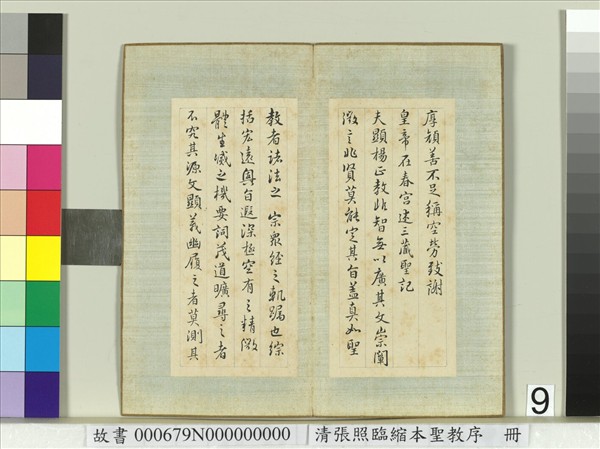 厚顏善不足稱空勞致謝
皇帝在春宮述三藏聖記
夫顯楊正教非智無以廣其文崇闡
微言非賢莫能定其旨盖真如聖
教者諸法之宗眾經之軌躅也綜
括宏遠奧旨遐深極空有之精微
體生滅之機要詞茂道曠尋之者
不究其源文顯義幽履之者莫測其
9
故書 000679N000000000 清張照臨縮本聖教序 冊